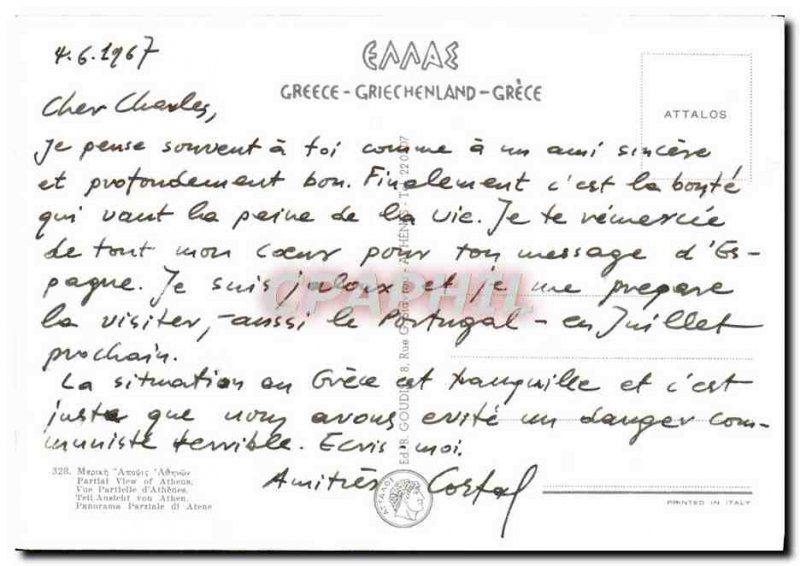 4.6.1967
ΕΛΛΑΣ
GREECE - GRIECHENLAND - GRÈCE
ATTALOS
Cher Charles,
Je pense souvent à toi comme à un ami sincère
et profondement bon. Finalement c'est la bonté
qui vaut la peine de la vie. Je te rémercie
de tout mon cœur pour ton message d'Es-
pagne. Je suis jaloux et je me prepare
la visiter, - aussi le Portugal - en Juillet
prochain.
La situation en Grèce est tranquille et c'est
juste que nous avons evité un danger com-
muniste terrible. Ecris-moi.
Amitiés
CPAPHIL
328. Μερικὴ Ἄποψις Ἀθηνῶν
Partial View of Athens
Vue Partielle d'Athènes
Teil Ansicht von Athen
Panorama Parziale di Atene
Ed. B. GOUDIS 8, Rue - ATHÈNES - Tél.
ΑΤΤΑΛΟΣ
PRINTED IN ITALY